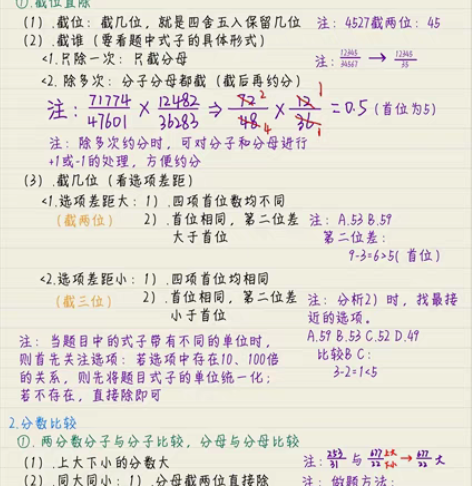 ①.截位直除
(1).截位：截几位，就是四舍五入保留几位 注：4527截两位：45
(2).截谁（要看题中式子的具体形式）
<1.只除一次：只截分母 注：12345/34567 → 12345/35
<2.除多次：分子分母都截（截后再约分）
注：71774/47601 × 12482/36283 ⇒ 72/48 × 12/36 = 0.5（首位为5）
2 4 1 1
注：除多次约分时，可对分子和分母进行
+1或-1的处理，方便约分
(3).截几位（看选项差距）
<1.选项差距大：1）.四项首位数均不同
（截两位） 2）.首位相同，第二位差 注：A.53 B.59
大于首位 第二位差：
9-3=6>5(首位）
<2.选项差距小：1）.四项首位均相同
（截三位） 2）.首位相同，第二位差 注：分析2）时，找最接
小于首位 近的选项。
A.59 B.53 C.52 D.49
注：当题目中的式子带有不同的单位时， 比较B C：
则首先关注选项：若选项中存在10、100倍 3-2=1<5
的关系，则先将题目式子的单位统一化；
若不存在，直接除即可
2.分数比较
①.两分数分子与分子比较，分母与分母比较
(1).上大下小的分数大 注：253/31 与 677/22 上大 下小 → 677/22 大
(2).同大同小：1）.分母截两位直接除 注：做题方法：